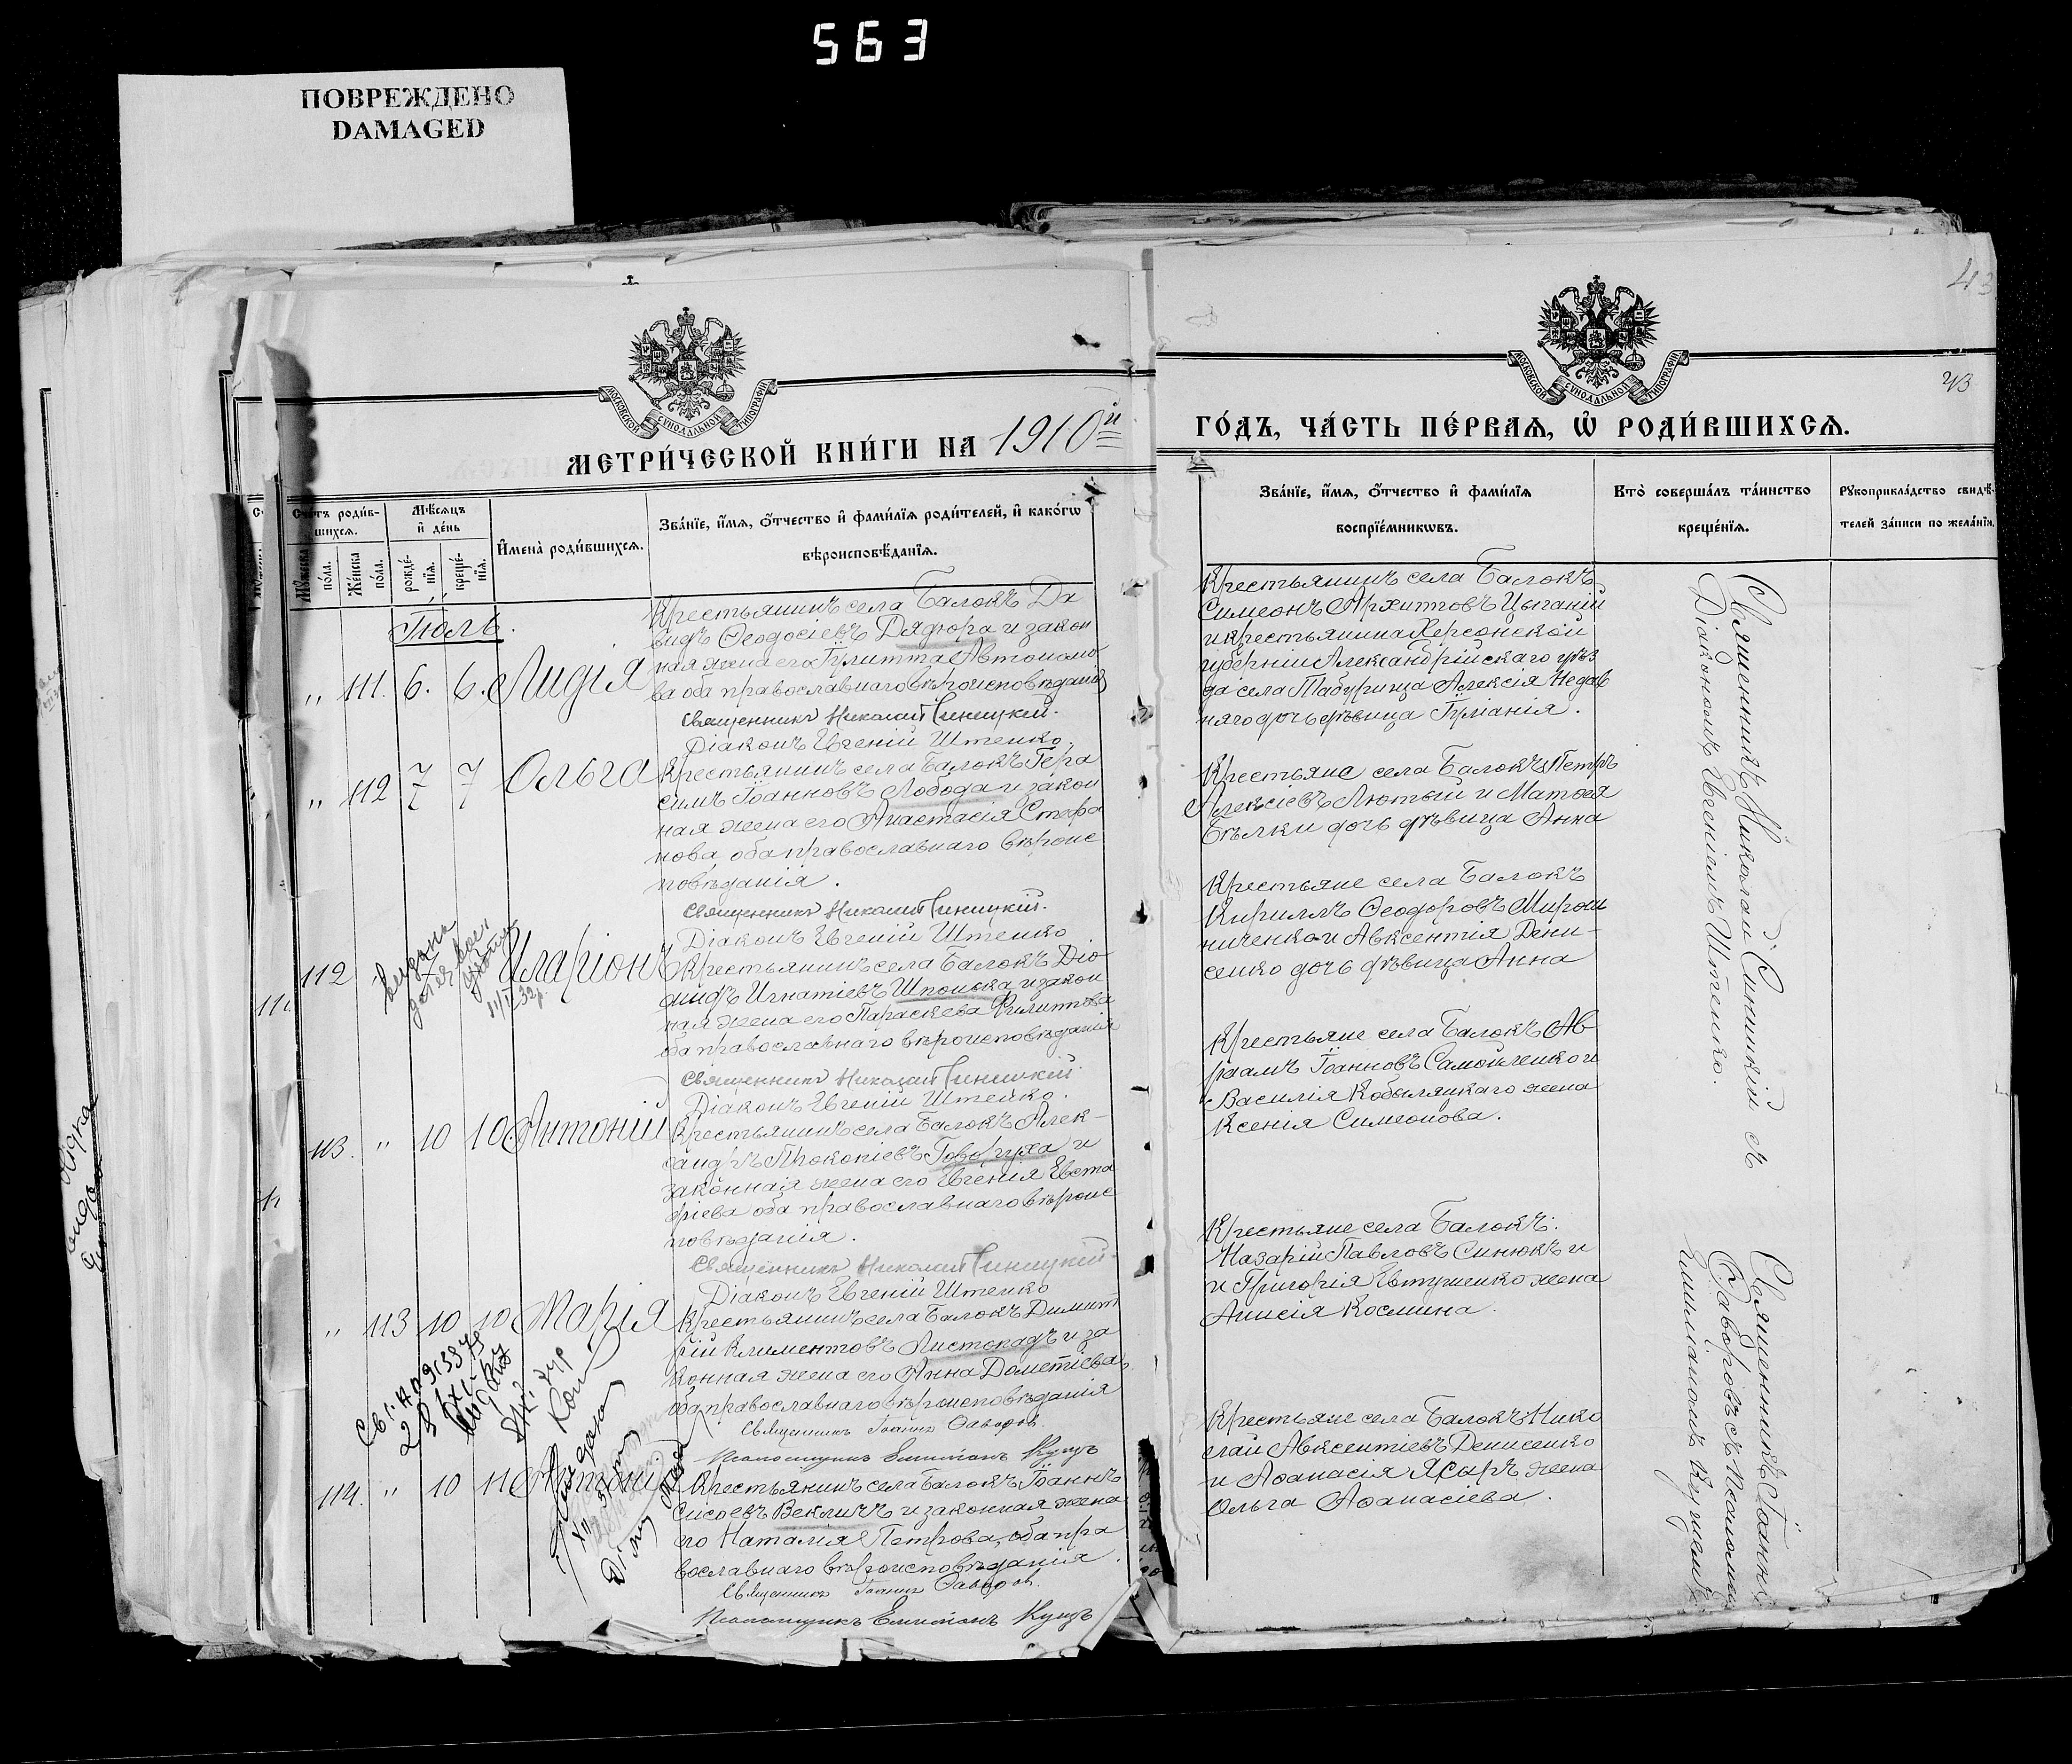 563
ПОВРЕЖДЕНО
DAMAGED
43
43
МОСКОВСКОЙ СѴНОДАЛЬНОЙ ТИПОГРАФІИ
МЕТРИ́ЧЕСКОЙ КНИ́ГИ НА 1910й
МОСКОВСКОЙ СѴНОДАЛЬНОЙ ТИПОГРАФІИ
ГО́ДЪ, ЧА́СТЬ ПЕ́РВАЯ, Ѡ҆ РОДИ́ВШИХСЯ.
Сче́тъ роди́в-
шихся.
Мꙋ́жеска
по́ла.
Же́нска
по́ла.
Мѣ́сяцъ
и҆ де́нь
рожде́-
нїя.
креще́-
нїя.
И҆мена̀ роди́вшихся.
Зва́нїе, и҆́мя, ѻ҆́тчество и҆ фами́лїя роди́телей, и҆ како́гѡ
вѣроисповѣ́данїя.
Зва́нїе, и҆́мя, ѻ҆́тчество и҆ фами́лїя
воспрїе́мникѡвъ.
Кто̀ соверша́лъ та́инство
креще́нїя.
Рꙋкоприкла́дство свидѣ́-
телей за́писи по жела́нїю.
Іюль.
„ 111. 6. 6. Лидія
Крестьянинъ села Балокъ Да
видъ Ѳеодосіевъ Дядюра и закон
ная жена его Іулитта Автономо
ва оба православнаго вѣроисповѣданія
Священникъ Николай Синицкій.
Діаконъ Евгеній Штенко.
Крестьянинъ села Балокъ
Симеонъ Архиповъ Цыганій
и крестьянина Херсонской
губерніи Александрійскаго уѣз
да села Табурища Алексія Недав
няго дочь дѣвица Іуліанія.
„ 112 7 7 Ольга
Крестьянинъ села Балокъ Гера
симъ Іоанновъ Лобода и закон
ная жена его Анастасія Стефа
нова, оба православнаго вѣроис
повѣданія.
Священникъ Николай Синицкій.
Діаконъ Евгеній Штенко
Крестьяне села Балокъ Петръ
Алексіевъ Лютый и Матѳея
Бѣлки дочь дѣвица Анна
112 Иларіонъ
Крестьянинъ села Балокъ Діо
мидъ Игнатіевъ Шпонька и закон
ная жена его Параскева Филиппова
оба православнаго вѣроисповѣданія
Священникъ Николай Синицкій.
Діаконъ Евгеній Штенко.
Крестьяне села Балокъ
Кириллъ Ѳеодоровъ Мирош
ниченко и Авксентія Дени-
сенко дочь дѣвица Анна
113. „ 10 10 Антоній
Крестьянинъ села Балокъ Алек-
сандръ Прокопіевъ Говоруха и
законная жена его Евгенія Евста
фіева оба православнаго вѣроис
повѣданія.
Священникъ Николай Синицкій.
Діаконъ Евгеній Штенко
Крестьяне села Балокъ Ав
раамъ Іоанновъ Самойленко и
Василія Кобыляцкаго жена
Ксенія Симеонова.
„ 113 10 10 Марія
Крестьянинъ села Балокъ Димит
рій Климентовъ Листопадъ и за
конная жена его Анна Дометіева
оба православнаго вѣроисповѣданія
Священникъ Іоаннъ Ѳаворовъ.
Псаломщикъ
Крестьяне села Балокъ:
Назарій Павловъ Синюкъ и
и Григорія Евтушенко жена
Анисія Космина.
114. „ 10 11 Антоній
Крестьянинъ села Балокъ Іоаннъ
Сисоевъ Векличъ и законная жена
его Наталія Петрова, оба пра
вославнаго вѣроисповѣданія.
Священникъ Іоаннъ Ѳаворовъ.
Псаломщикъ
Крестьяне села Балокъ Нико
лай Авксентіевъ Денисенко
и Аѳанасія Ясыръ жена
Ольга Аѳанасіева.
Священникъ Николай Синицкій съ
Діакономъ Евгеніемъ Штенко.
Священникъ Іоаннъ
Ѳаворовъ съ Псалом